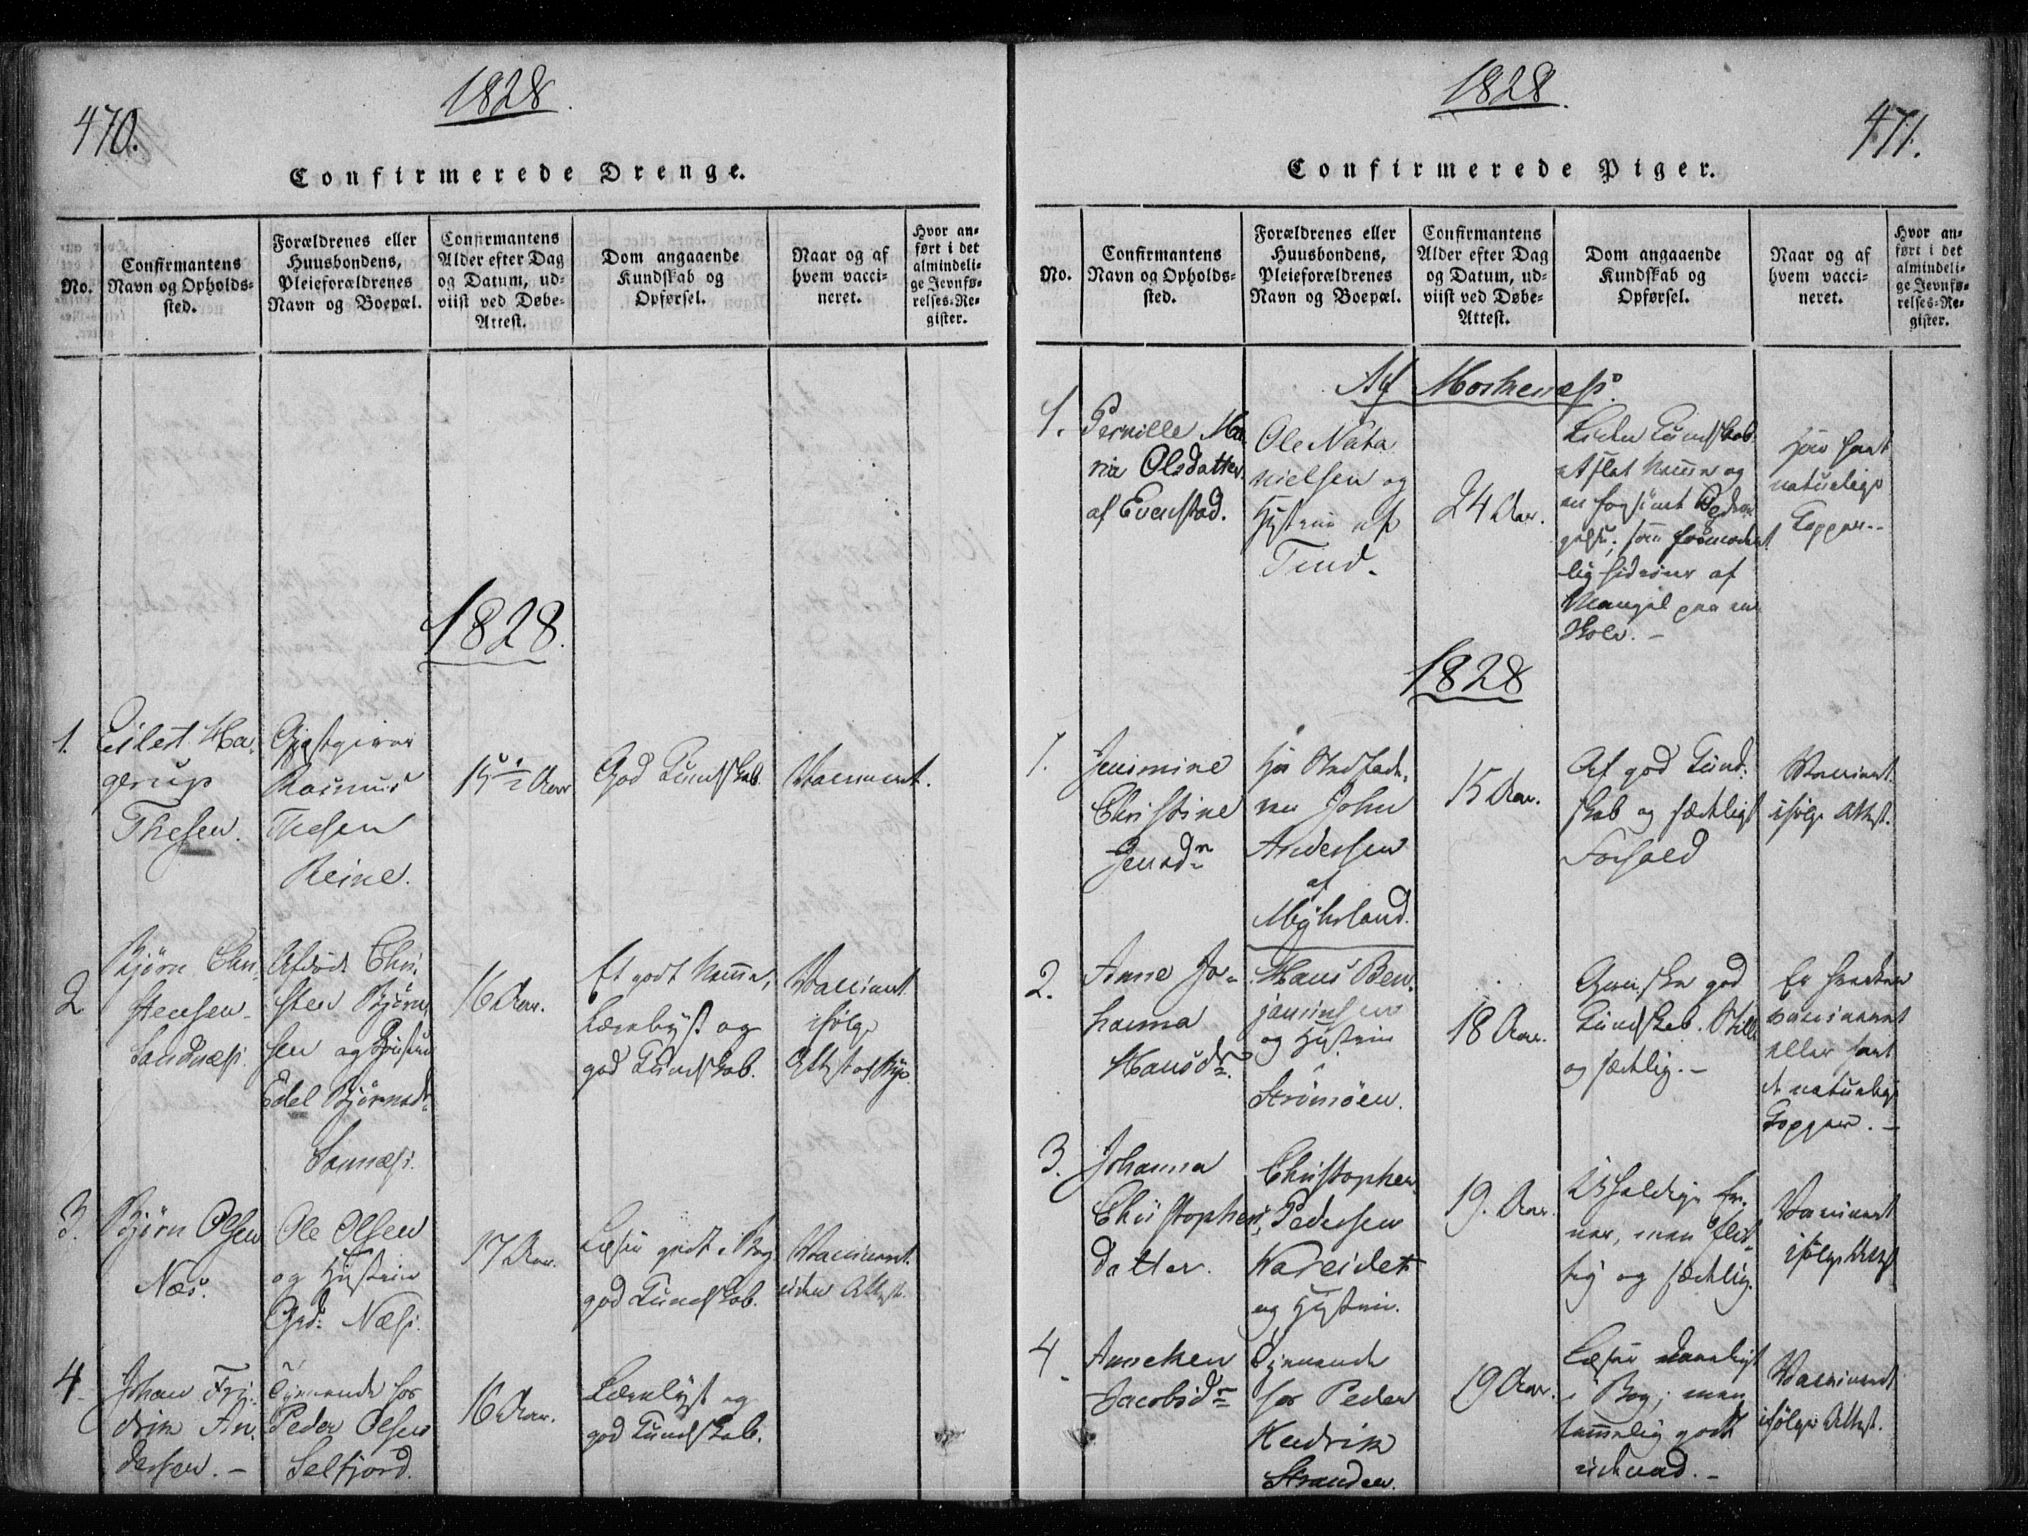 470.
1828
Confirmerede Drenge.
No.
Confirmantens
Navn og Opholds-
sted.
Forældrenes eller
Huusbondens,
Pleieforældrenes
Navn og Boepæl.
Confirmantens
Alder efter Dag
og Datum, ud-
viist ved Døbe-
Attest.
Dom angaaende
Kundskab og
Opførsel.
Naar og af
hvem vacci-
neret.
Hvor an-
ført i det
almindeli-
ge Jevnfø-
relses-Re-
gister.
1828.
1.
Eilert Ha-
gerup
Thesen.
Gjestgiver
Rasmus
Thesen
Reine.
15 1/2 Aar
God Kundskab.
Vaccineret.
2
Bjørn Chri-
stensen
Sandnæss.
Afdøde Chri-
sten Bjørn-
sen og
Edel Bjørnsdr
Sannæss.
16 Aar.
Et godt Nemme,
Lærelyst og
god Kundskab.
Vaccineret
ifølge
Attest af
3.
Bjørn Olsen
Næs.
Ole Olsen
og Hustrue
Næss.
17 Aar.
Læser godt i Bog
god Kundskab.
Vaccineret
uden Attest.
4.
Johan Fri-
drik An-
dersen. -
Tjenende hos
Peder Olsen
Selfjord.
16 Aar.
Lærelyst og
god Kundskab.
1828.
471.
Confirmerede Piger.
No.
Confirmantens
Navn og Opholds-
sted.
Forældrenes eller
Huusbondens,
Pleieforældrenes
Navn og Boepæl.
Confirmantens
Alder efter Dag
og Datum, ud-
viist ved Døbe-
Attest.
Dom angaaende
Kundskab og
Opførsel.
Naar og af
hvem vacci-
neret.
Hvor an-
ført i det
almindeli-
ge Jevnfø-
relses-Re-
gister.
Af Moskenæss.
1.
Pernille Ma-
ria Olsdatter
af Evenstad.
Ole Nata
nielsen og
Hustrue af
Tind.
24 Aar.
Liden Kundskab
et slet Nemme og
en forsømt
som formodent
lig hidrører af
Mangel paa en
Skole. -
Har havt
naturlige
Kopper. -
1828
1.
Jensmine
Christine
Jensdr
Hos Stedfade-
ren John
Andersen
af
Myhrland.
15 Aar.
Af god Kund-
skab og sædeligt
Forhold
Vaccineret
ifølge Attest.
2.
Anne Jo-
hanna
Hansdr.
Hans Ben-
jaminsen
og Hustrue
Strømøen.
18 Aar.
Ganske god
Kundskab. Stille
og sædelig. -
Er hverken
vaccineret
eller havt
de naturlige
Kopper. -
3.
Johanna
Christophers
datter.
Christopher
Pedersen
Kareidet
og Hustrue.
19. Aar.
Uheldige Ev-
ner, men flit-
tig og sædelig.
Vaccineret
ifølge Attest
4
Anneken
Jacobsdr
Tjenende
hos Peder
Hendrik
Stranden.
19 Aar.
Læser daarligt
i Bog; men
temmelig godt
udenad. -
Vaccineret
ifølge Attest.